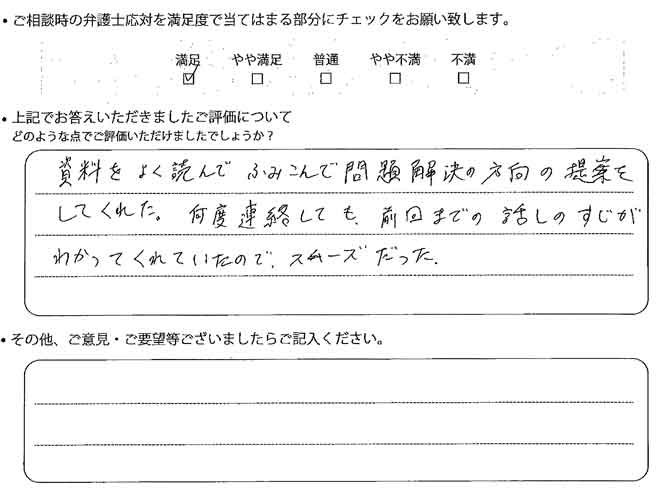 ・ご相談時の弁護士応対を満足度で当てはまる部分にチェックをお願い致します。
満足 やや満足 普通 やや不満 不満
☑ □ □ □ □
・上記でお答えいただきましたご評価について
どのような点でご評価いただけましたでしょうか？
資料をよく読んで ふみこんで問題解決の方向の提案を
してくれた。何度連絡しても、前回までの話しのすじが
わかってくれていたので、スムーズだった。
・その他、ご意見・ご要望等ございましたらご記入ください。